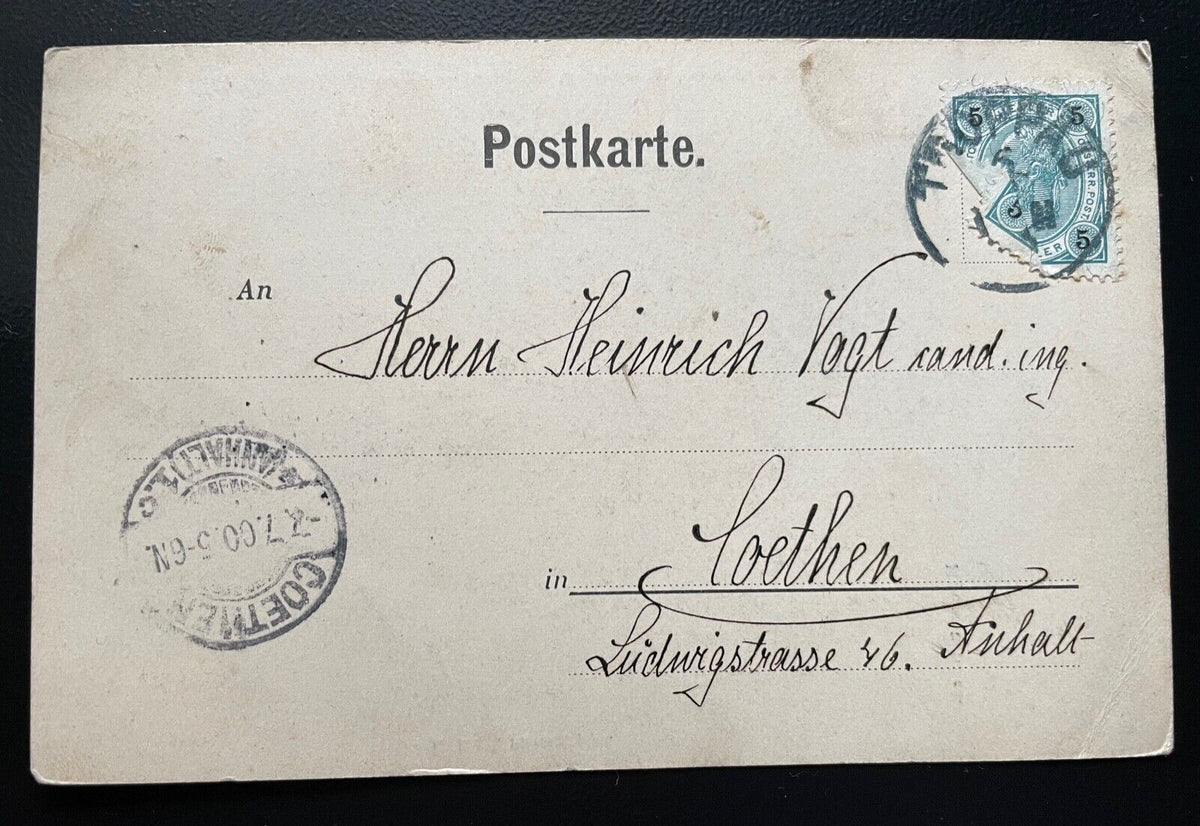 Postkarte.
5 5
OESTERR. POST.
5
An
Herrn Heinrich Vogt cand. ing.
(ANHALT) 1.
7.00.5-6N.
COETHEN
in Coethen
Ludwigstrasse 46. Anhalt